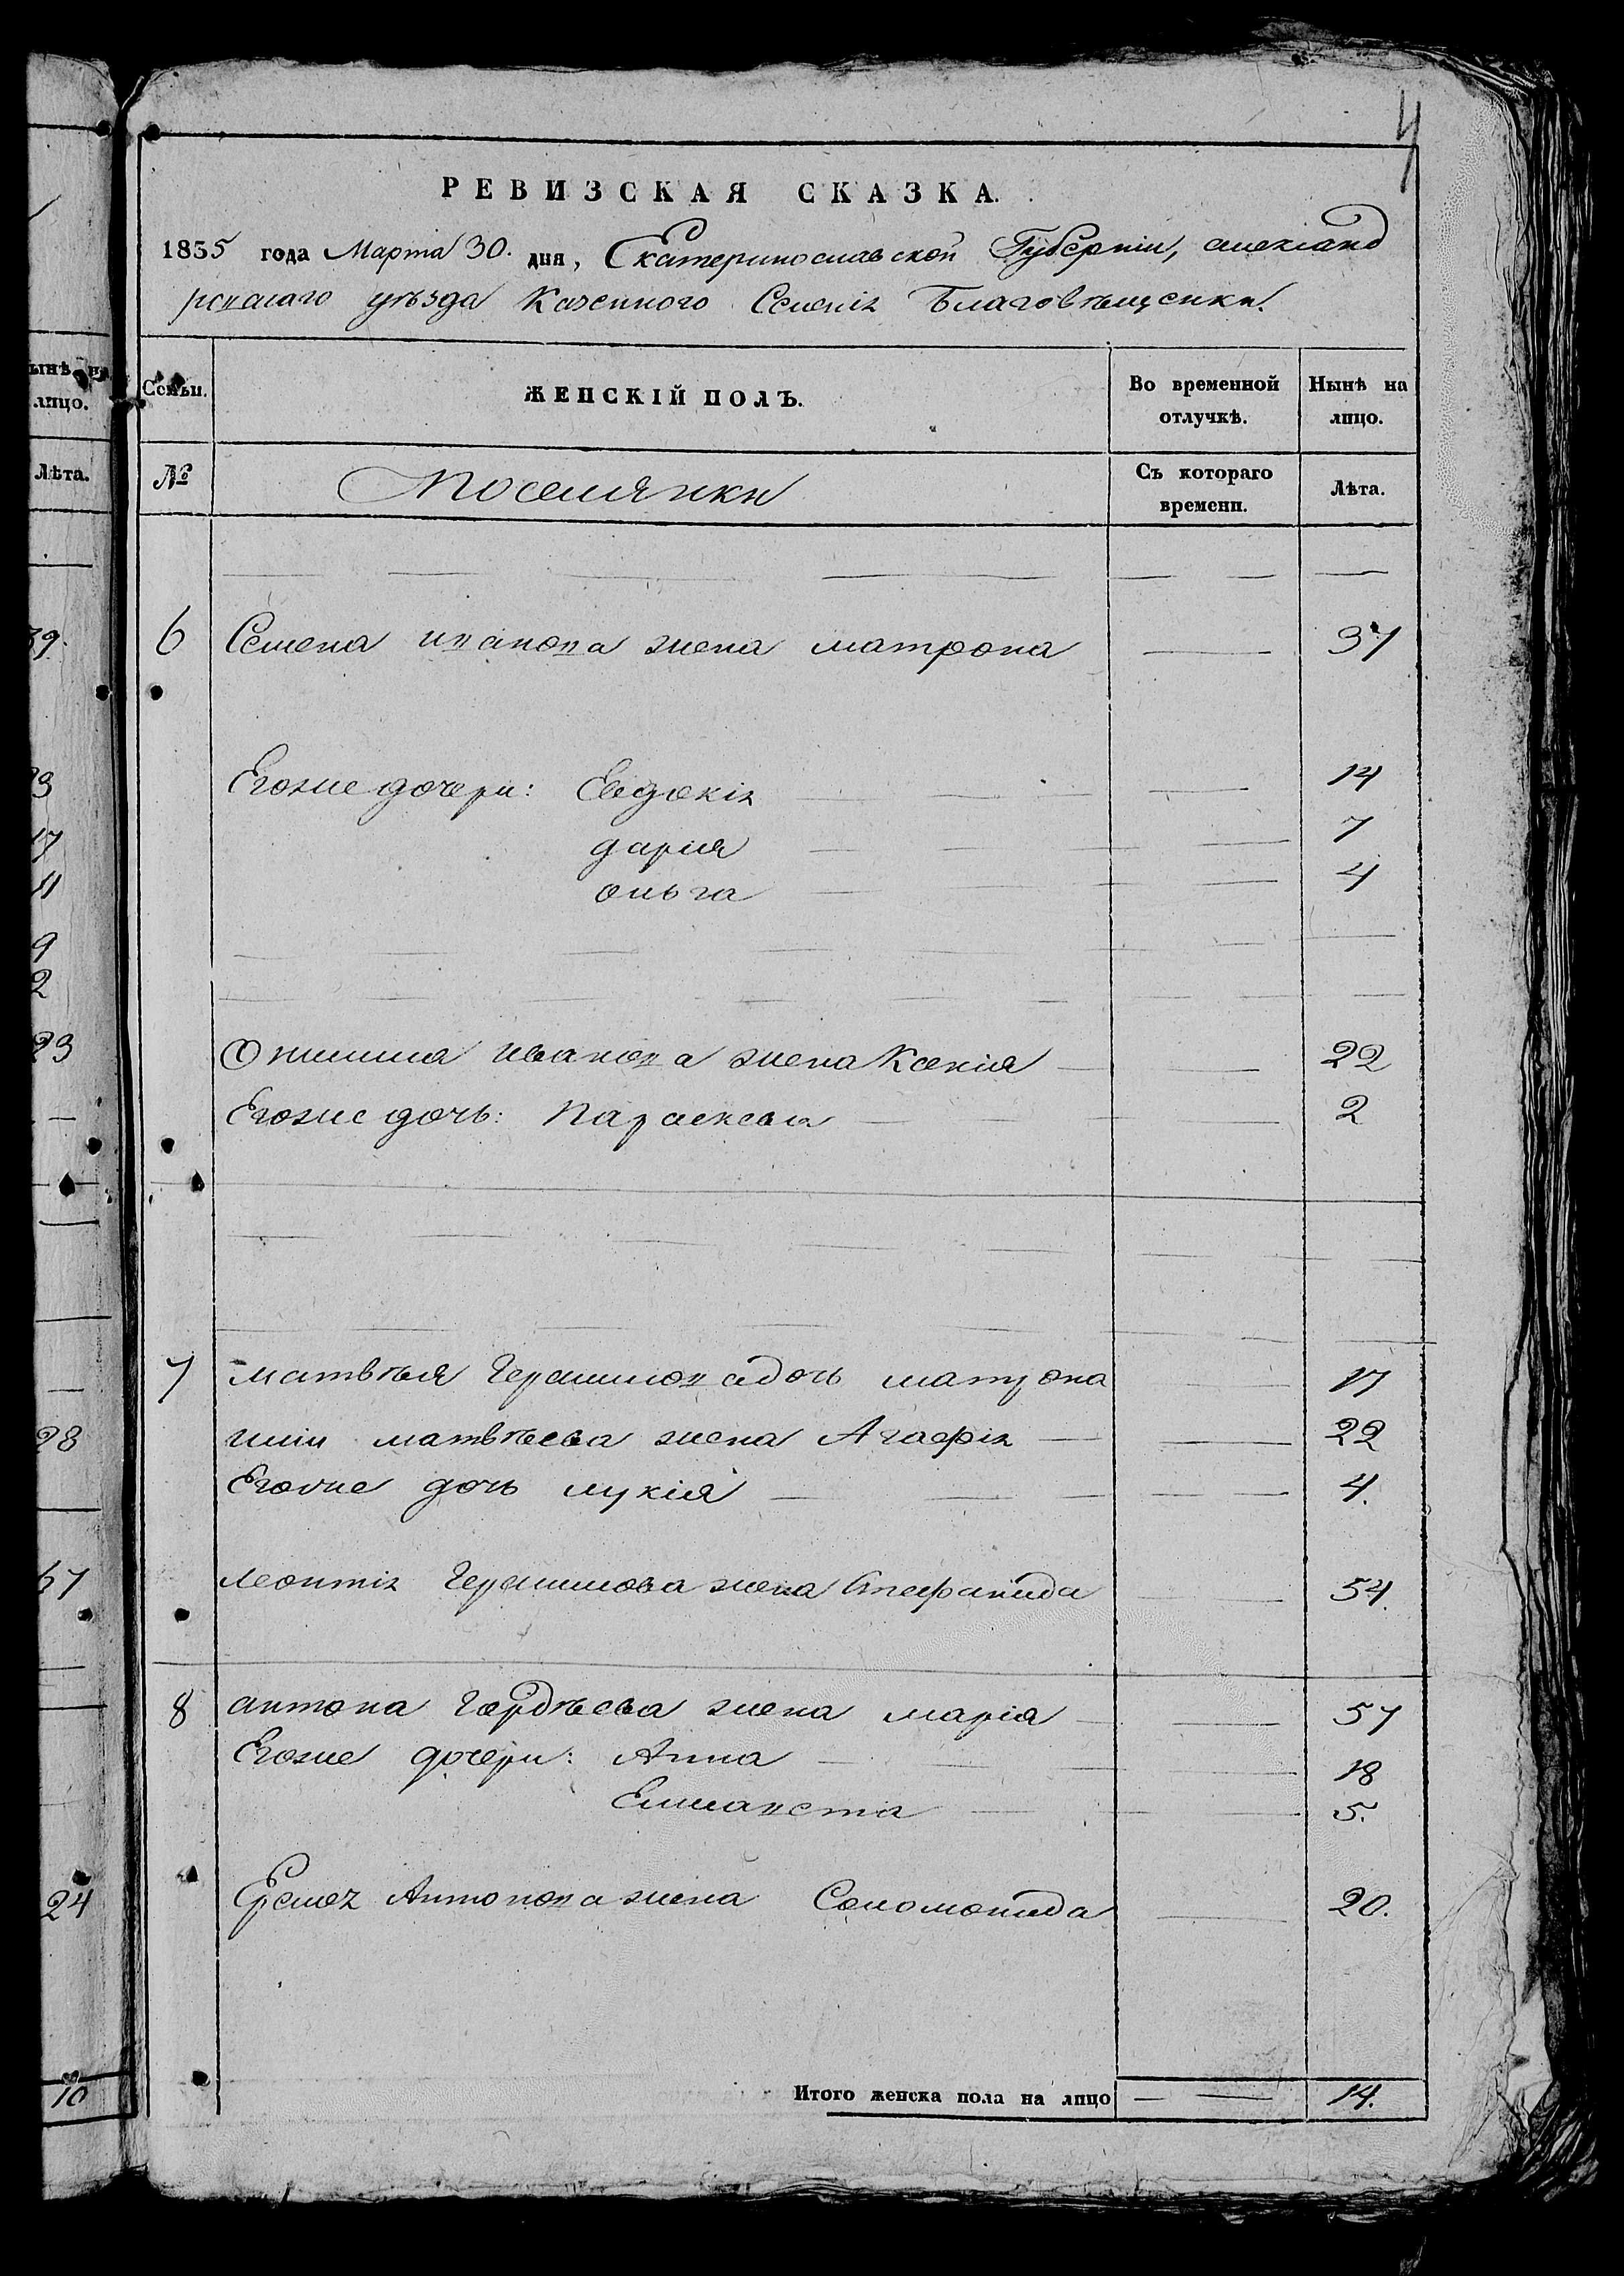 4
РЕВИЗСКАЯ СКАЗКА.
1835 года Марта 30. дня, Екатеринославской Губерніи, александ
ровскаго уѣзда Казенного Селенія Благовѣщенки.
ынѣ на
лицо.
Лѣта.
Семьи. ЖЕНСКІЙ ПОЛЪ. Во временной отлучкѣ. Нынѣ на лицо.
№ Поселянки Съ котораго времени. Лѣта.
6 Семена иванова жена матрона 37
Егоже дочери: Евдокія 14
дарія 7
ольга 4
иванова жена Ксенія 22
Егоже дочь: Параскева 2
7 матвѣя Герасимова дочь матрона 17
иліи матвѣева жена Агафія 22
Егоже дочь лукія 4.
леонтія Герасимова жена Стефанида 54.
8 антона Гордѣева жена марія 57
Егоже дочери: Анна 18
Елисавета 5.
Антонова жена Соломонида 20.
Итого женска пола на лицо 14.
39.
17
11
9
2
23
28
67
24
10